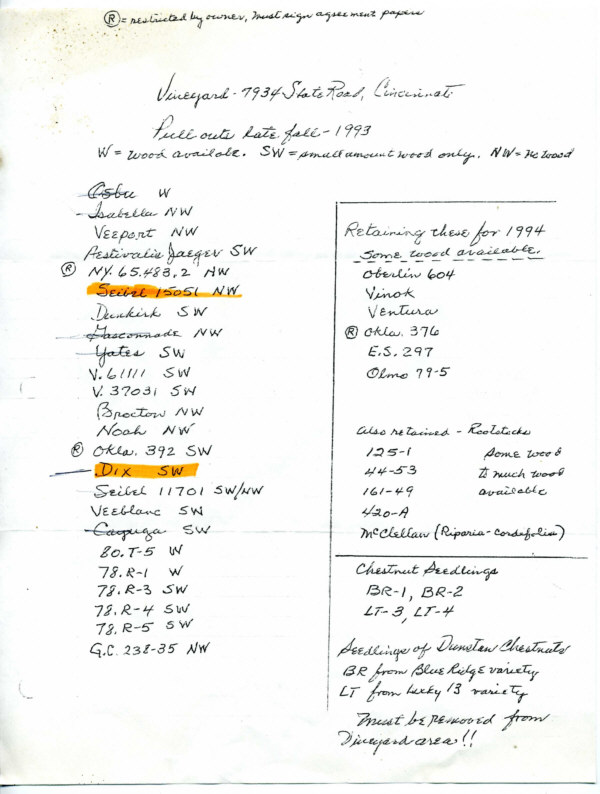 Ⓡ = restricted by owner, must sign agreement papers
Vineyard - 7934 State Road, Cincinnati
Pull outs late fall - 1993
W = wood available. SW = small amount wood only. NW = No wood
Csbu W
Isabella NW
Veeport NW
Aestivalis Jaeger SW
Ⓡ NY. 65.483.2 NW
Seibel 15051 NW
Dunkirk SW
Gasconnade NW
Yates SW
V. 61111 SW
V. 37031 SW
Brocton NW
Noah NW
Ⓡ Okla. 392 SW
Dix SW
Seibel 11701 SW/NW
Veeblanc SW
Cayuga SW
80. T-5 W
78. R-1 W
78. R-3 SW
78. R-4 SW
78. R-5 SW
G.C. 238-35 NW
Retaining these for 1994
Some wood available.
Oberlin 604
Vinok
Ventura
Ⓡ Okla. 376
E.S. 297
Olmo 79-5
Also retained - Rootstocks
125-1 some wood
44-53 to much wood
161-49 available
420-A
McClellan (Riparia-cordifolia)
Chestnut Seedlings
BR-1, BR-2
LT-3, LT-4
Seedlings of Dunstan Chestnuts
BR from Blue Ridge variety
LT from Lucky 13 variety
Must be removed from
Vineyard area!!